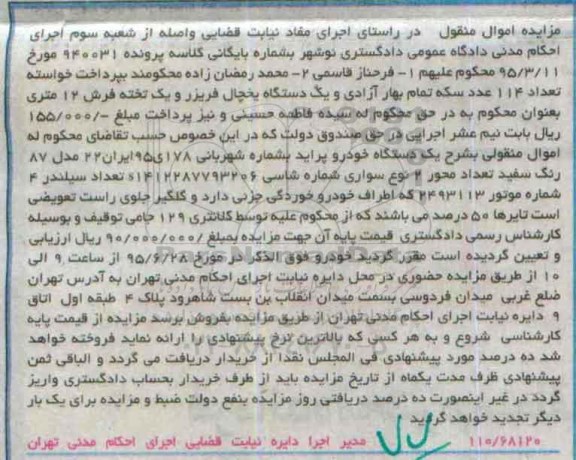 مزایده اموال منقول در راستای اجرای مفاد نیابت قضایی واصله از شعبه سوم اجرای
احکام مدنی دادگاه عمومی دادگستری نوشهر بشماره بایگانی کلاسه پرونده ۹۴۰۰۳۱ مورخ
۹۵/۳/۱۱ محکوم علیهم ۱- فرحناز قاسمی ۲- محمد رمضان زاده محکومند بپرداخت خواسته
تعداد ۱۱۴ عدد سکه تمام بهار آزادی و یگ دستگاه یخچال فریزر و یک تخته فرش ۱۲ متری
بعنوان محکوم به در حق محکوم له سیده فاطمه حسینی و نیز پرداخت مبلغ -/۱۵۵/۰۰۰
ریال بابت نیم عشر اجرایی در حق صندوق دولت که در این خصوص حسب تقاضای محکوم له
اموال منقولی بشرح یک دستگاه خودرو پراید بشماره شهربانی ۱۷۸ی۹۵ایران۲۲ مدل ۸۷
رنگ سفید تعداد محور ۲ نوع سواری شماره شاسی ۱۴۱۲۲۸۷۷۹۳۲۰۶ تعداد سیلندر ۴
شماره موتور ۲۴۹۳۱۱۳ که اطراف خودرو خوردگی جزئی دارد و گلگیر جلوی راست تعویضی
است تایرها ۵۰ درصد می باشند که از محکوم علیه توسط کلانتری ۱۲۹ جامی توقیف و بوسیله
کارشناس رسمی دادگستری قیمت پایه آن جهت مزایده بمبلغ /۹۰/۰۰۰/۰۰۰ ریال ارزیابی
و تعیین گردیده است مقرر گردید خودرو فوق الذکر در مورخ ۹۵/۶/۲۸ از ساعت ۹ الی
۱۰ از طریق مزایده حضوری در محل دایره نیابت اجرای احکام مدنی تهران به آدرس تهران
ضلع غربی میدان فردوسی بسمت میدان انقلاب بن بست شاهرود پلاک ۴ طبقه اول اتاق
۹ دایره نیابت اجرای احکام مدنی تهران از طریق مزایده بفروش برسد مزایده از قیمت پایه
کارشناسی شروع و به هر کسی که بالاترین نرخ پیشنهادی را ارائه نماید فروخته خواهد
شد ده درصد مورد پیشنهادی فی المجلس نقدا از خریدار دریافت می گردد و الباقی ثمن
پیشنهادی ظرف مدت یکماه از تاریخ مزایده باید از طرف خریدار بحساب دادگستری واریز
گردد در غیر اینصورت ده درصد دریافتی روز مزایده بنفع دولت ضبط و مزایده برای یک بار
دیگر تجدید خواهد گردید
۱۱۰/۶۸۱۲۰ مدیر اجرا دایره نیابت قضایی اجرای احکام مدنی تهران